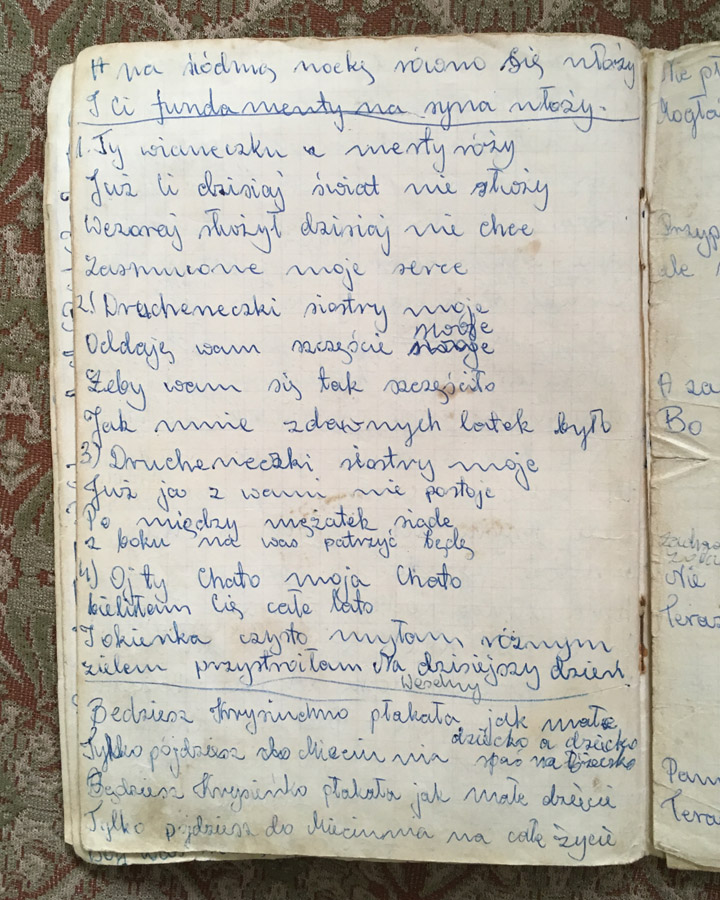 A na siódmą nockę równo się ułoży
I Ci fundamenty na syna ułoży.
1. Ty wianeczku z menty róży
Już Ci dzisiaj świat nie służy
Wczoraj służył dzisiaj nie chce
Zasmucone moje serce
2) Drucheneczki siostry moje
Oddaję wam szczęście swoje
Żeby wam się tak szczęściło
Jak mnie zdawnych latek było
3) Drucheneczki siostry moje
Już ja z wami nie postoje
Po między mężatek siądę
z boku na was patrzyć będę
4) Oj ty Chato moja Chato
bieliłam Cię całe lato
I okienka czysto myłam różnym
zielem przystroiłam Na dzisiejszy dzień
Weselny
Bedziesz Krysiuchno płakała jak małe
dziecko a dziecko
Tylko pójdziesz do Miecia nia spać na łóżecko
Będziesz Krysieńko płakała jak małe dziecie
Tylko pójdziesz do Mieciunia na całe życie
Nie
Przyp
ale
A za
Bo
Nie
Teraz
Pam
Tera